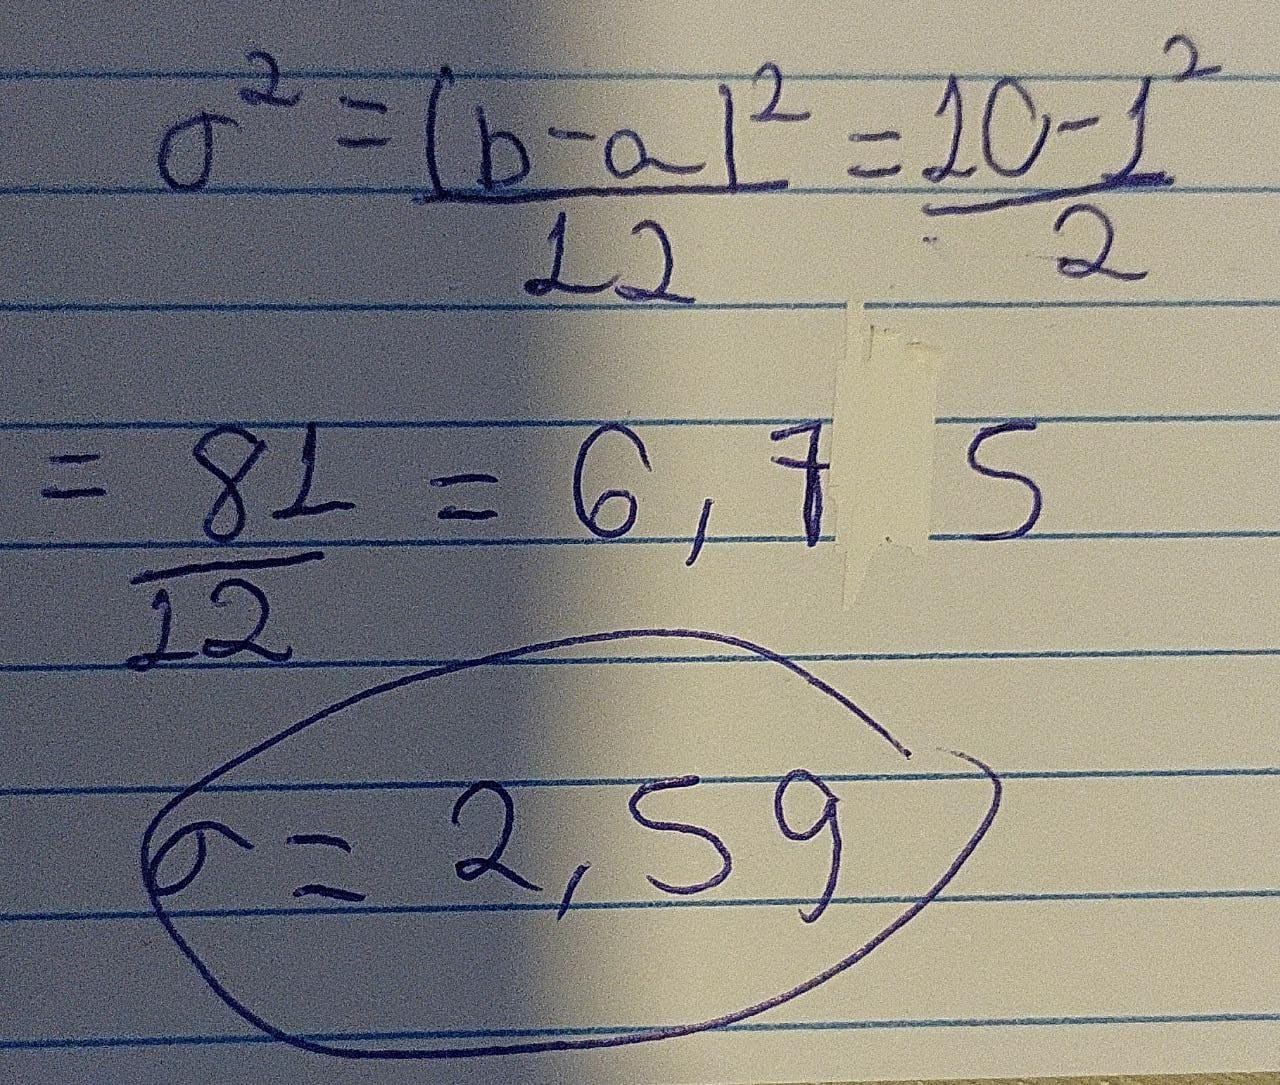 σ² = (b-a)² / 12 = 10-1² / 2
= 81 / 12 = 6,7 5
σ = 2,59